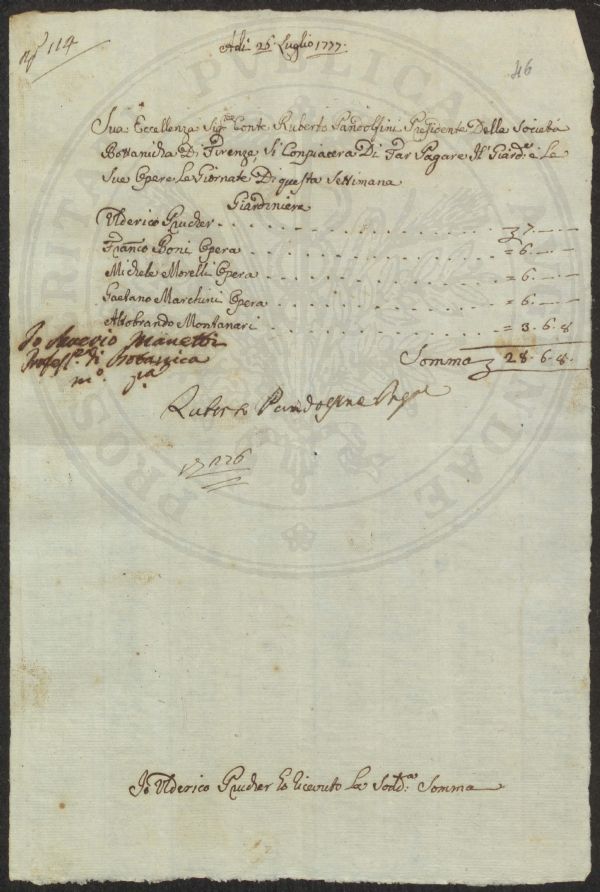 N.° 114
Adi 26 Luglio 1777.
46
Sua Eccellenza Sig:re Conte Ruberto Pandolfini Presidente Della Società
Bottanicha Di Firenze, Si Conpiacera Di Far Pagare Il Giard:e e Le
Sue Opere Le Giornate Di questa Settimana
Giardiniere
Ulderico Prucher . . . . . . . . . . 7. — —
Franco Boni Opera . . . . . . . . . . = 6. — —
Michele Morelli Opera . . . . . . . . . . = 6. — —
Gaetano Marchini Opera . . . . . . . . . . = 6. — —
Aldobrando Montanari . . . . . . . . . . = 3. 6. 8
Somma 28. 6. 8.
Io Saverio Manetti
Profess.re di Botanica
m.o p.a
Ruberto Pandolfini
126
Io Ulderico Prucher ho ricevuto La Sodd:a Somma
PROSPERITATI PUBLICAE AUGENDAE